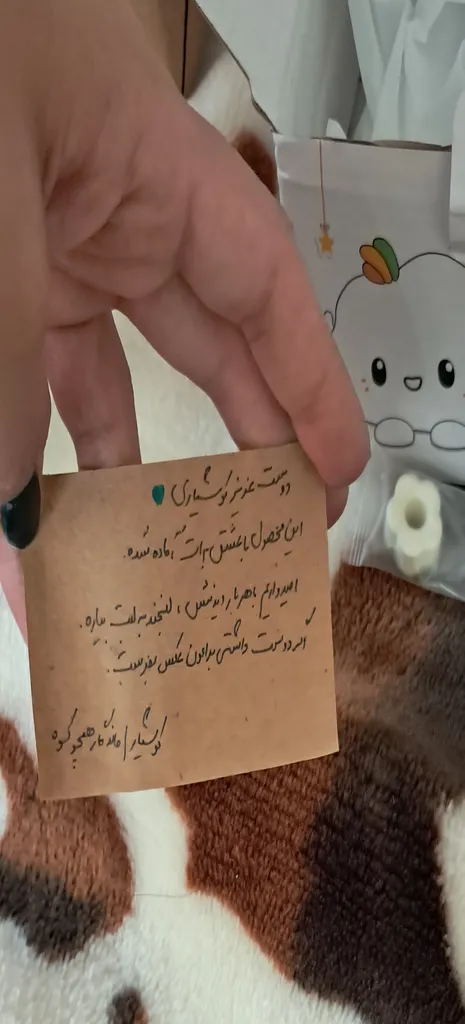 دوست عزیز کوشیاری
این محصول با عشق برات آماده شده.
امیدواریم هر بار دیدنش، لبخند به لبت بیاره.
اگر دوست داشتی برامون عکس بفرست.
کوشیار / ماندگار همچو کوه